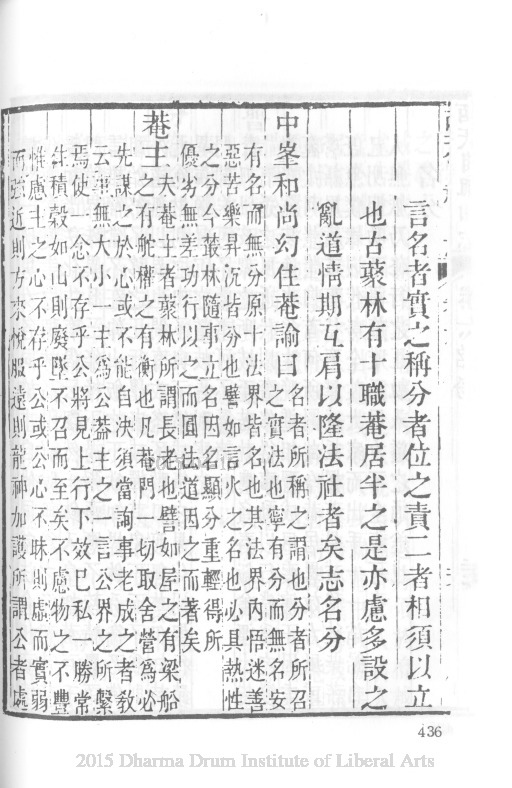 言名者實之稱分者位之責二者相須以立
也古叢林有十職菴居半之是亦慮多設之
亂道情期互肩以隆法社者矣志名分
中峯和尚幻住菴諭曰
名者所稱之謂也分者所召
之實法也寧有分而無名安
有名而無分原十法界皆名也其法界內悟迷善
惡苦樂昇沉皆分也譬如言火之名也必具熱性
之分今叢林隨事立名因名顯分重輕得所
優劣無差功行以之而圓法道因之而著矣
菴主
夫菴主者叢林所謂長老也譬如屋之有梁船
之有舵權之有衡也凡菴門一切取舍營爲必
先謀之於心或不能自決須當詢事老成之者教
云事無大小一主爲公葢主之一言公界之所繫
焉使一念不存乎公將見上行下效已私一勝常
住積穀如山則廢墜不召而至矣不慮物之不豐
惟慮主之心不存乎公或公心不昧則虛而實弱
而強近則方來悅服遠則龍神加護所謂公者處
436
2015 Dharma Drum Institute of Liberal Arts